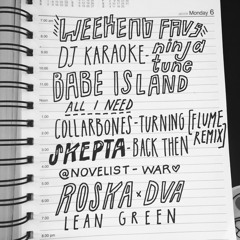 Monday 6
WEEKEND FAVS
DJ KARAOKE - ninja tune
BABE ISLAND
ALL I NEED
COLLARBONES - TURNING [FLUME REMIX]
SKEPTA - BACK THEN
@NOVELIST - WAR♡
ROSKA × DVA
LEAN GREEN